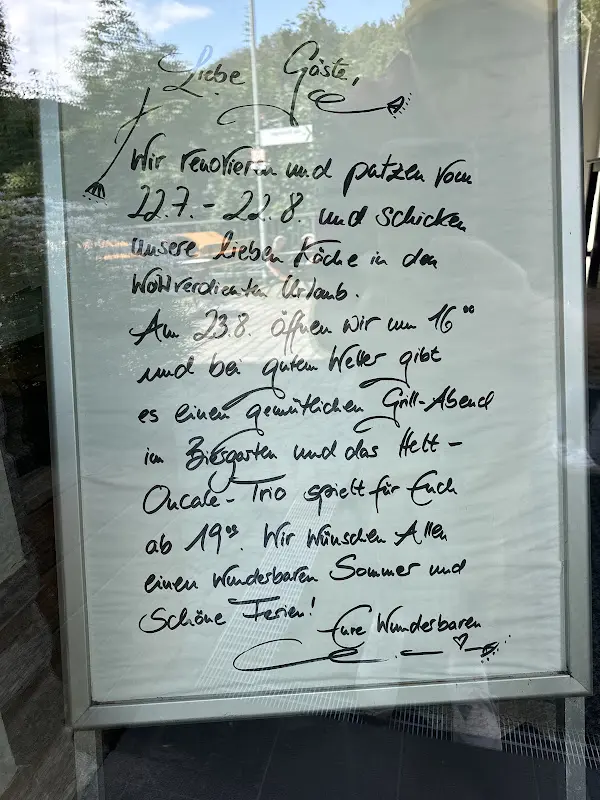 Liebe Gäste,
Wir renovieren und putzen vom
22.7. - 22.8. und schicken
unsere lieben Köche in den
wohlverdienten Urlaub.
Am 23.8. öffnen wir um 16⁰⁰
und bei gutem Wetter gibt
es einen gemütlichen Grill-Abend
im Biergarten und das
Trio spielt für Euch
ab 19⁰⁰. Wir wünschen Allen
einen wunderbaren Sommer und
schöne Ferien!
Eure Wunderbaren